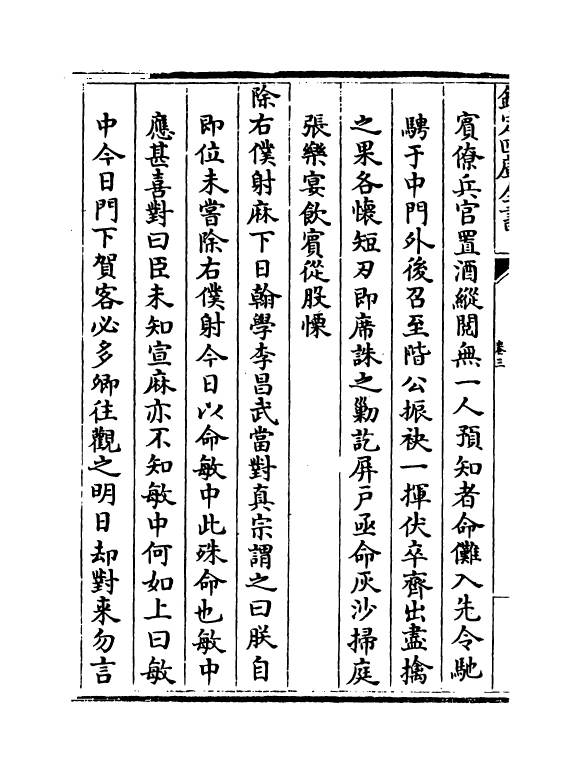 欽定四庫全書
卷三
賓僚兵官置酒縱閲無一人預知者命儺入先令馳
騁于中門外後召至階公振袂一揮伏卒齊出盡擒
之果各懷短刃即席誅之勦訖屏戸亟命灰沙掃庭
張樂宴飲賓從股慄
除右僕射麻下日翰學李昌武當對真宗謂之曰朕自
即位未嘗除右僕射今日以命敏中此殊命也敏中
應甚喜對曰臣未知宣麻亦不知敏中何如上曰敏
中今日門下賀客必多卿往觀之明日却對来勿言